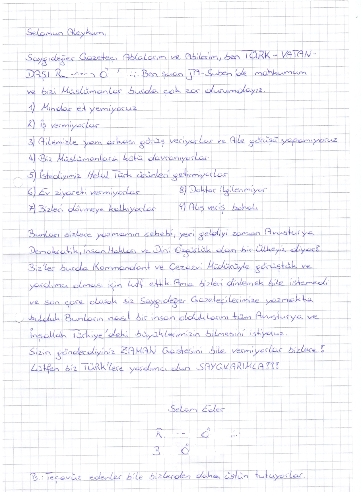 Selamun Aleykum.
Saygıdeğer Gazeteci Ablalarım ve Abilerim, ben TÜRK-VATAN-
DAŞI R. Ö Ben şuan Suben'de mahkumum
ve biz Müslümanlar burda çok zor durumdayız.
1) Mindar et yemiyoruz
2) İş vermiyorlar
3) Ailemizle yarı görüş veriyorlar ve Aile görüşü yapamıyoruz
4) Biz Müslümanlara kötü davranıyorlar
5) İstediyimiz Helal Türk ürünleri getirmiyorlar
6) Ev ziyareti vermiyorlar 8) Doktor ilgilenmiyor
7) Bizleri dövmeye kalkıyorlar 9) Alış veriş pahalı
Bunları sizlere yazmamın sebebi, yeri geldiyi zaman Avusturya
Demokratik, İnsan Hakları ve Dini Özgürlük olan bir Ülkeyiz diyor?
Bizler burda Kommandant ve Cezaevi Müdürüyle görüştük ve
yardımcı olması için ettik Ama bizleri dinlemek bile istemedi
ve son çare olarak siz Saygıdeğer Gazetecilerimize yazmakta
bulduk Bunların nasıl bir insan olduklarını tüm Avusturya ve
İnşallah Türkiye'deki büyüklerimizin bilmesini istiyoruz.
Sizin gönderdiyiniz ZAMAN Gazetesini bile vermiyorlar bizlere?
Lütfen biz Türk'lere yardımcı olun SAYGILARIMLA???
Selam Eder
R. Ö
3 Ö
Tecavüz edenler bile bizlerden daha üstün tutuyorlar.